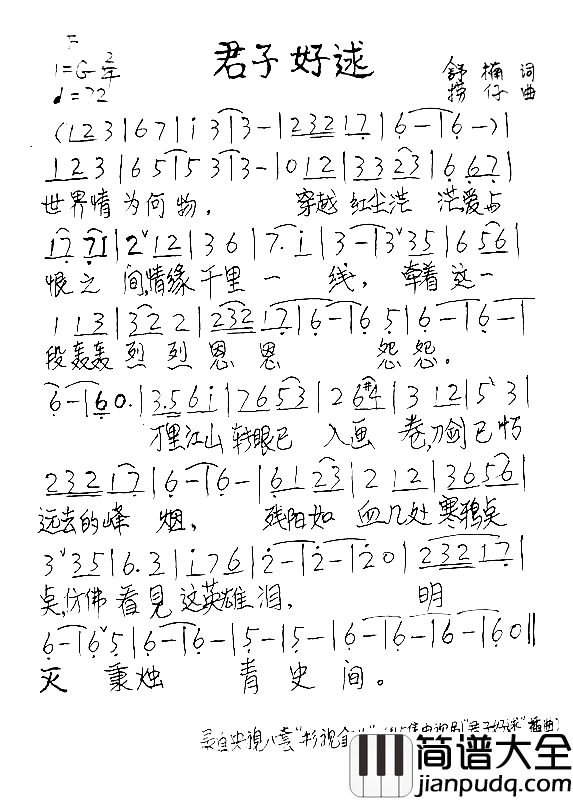 君子好逑
1=G 2/4
♩=72
舒楠 词
捞仔 曲
(1 2 3 | 6 7 | i 3 | 3 - | 2 3 2 1 7 | 6 - | 6 - ) |
1 2 3 | 6 5 | 5 3 | 3 - | 0 1 2 | 3 3 2 3 | 6 6 7 |
世界情为何物, 穿越红尘茫茫爱与
1 7 7 1 | 2 1 2 | 3 6 | 7. i | 3 - | 3 3 5 | 6 5 6 |
恨之间,情缘千里一线,牵着这一
1 1 3 | 3 2 2 | 2 3 2 1 7 | 6 - | 6 5 | 6 - | 6 - |
段轰轰烈烈恩恩怨怨。
6 - | 6 0. | 3.5 6 i | 7 6 5 3 | 2 6 #4 | 3 1 2 | 5 3 |
里江山转眼已入画卷,刀剑已朽
2 3 2 1 7 | 6 - | 6 - | 6 1 2 3 | 2 1 2 | 3 6 5 6 |
远去的峰烟, 残阳如血几处寒鸦桌
3 3 5 | 6. 3 | i 7 6 | 2 - | 2 - | 2 0 | 2 3 2 1 7 |
桌,仿佛看見这英雄泪, 明
6 - | 6 5 | 6 - | 6 - | 5 - | 5 - | 6 - | 6 - | 6 - | 6 0 ‖
灭秉烛青史间。
央视八套 "君子好逑" 插曲)
简谱大全
jianpudq.com